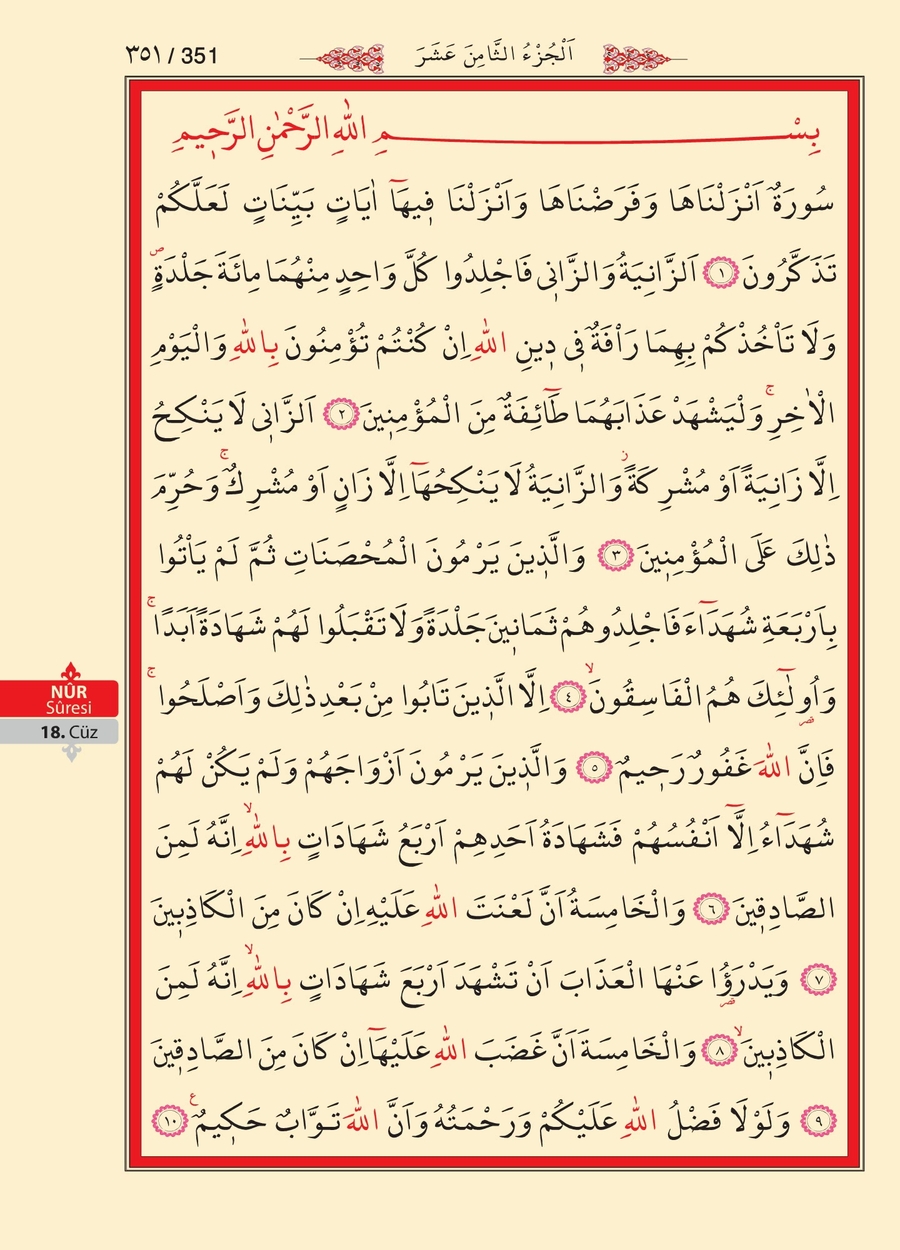 ٣٥١ / 351
اَلْجُزْءُ الثَّامِنَ عَشَرَ
بِسْمِ اللّٰهِ الرَّحْمٰنِ الرَّحٖيمِ
سُورَةٌ اَنْزَلْنَاهَا وَفَرَضْنَاهَا وَاَنْزَلْنَا فٖيهَٓا اٰيَاتٍ بَيِّنَاتٍ لَعَلَّكُمْ
تَذَكَّرُونَ ﴿١﴾ اَلزَّانِيَةُ وَالزَّانٖى فَاجْلِدُوا كُلَّ وَاحِدٍ مِنْهُمَا مِائَةَ جَلْدَةٍ ص
وَلَا تَاْخُذْكُمْ بِهِمَا رَاْفَةٌ فٖى دٖينِ اللّٰهِ اِنْ كُنْتُمْ تُؤْمِنُونَ بِاللّٰهِ وَالْيَوْمِ
الْاٰخِرِۚ وَلْيَشْهَدْ عَذَابَهُمَا طَٓائِفَةٌ مِنَ الْمُؤْمِنٖينَ ﴿٢﴾ اَلزَّانٖى لَا يَنْكِحُ
اِلَّا زَانِيَةً اَوْ مُشْرِكَةًؗ وَالزَّانِيَةُ لَا يَنْكِحُهَٓا اِلَّا زَانٍ اَوْ مُشْرِكٌۚ وَحُرِّمَ
ذٰلِكَ عَلَى الْمُؤْمِنٖينَ ﴿٣﴾ وَالَّذٖينَ يَرْمُونَ الْمُحْصَنَاتِ ثُمَّ لَمْ يَاْتُوا
بِاَرْبَعَةِ شُهَدَٓاءَ فَاجْلِدُوهُمْ ثَمَانٖينَ جَلْدَةً وَلَا تَقْبَلُوا لَهُمْ شَهَادَةً اَبَدًاۚ
وَاُو۬لٰٓئِكَ هُمُ الْفَاسِقُونَۙ ﴿٤﴾ اِلَّا الَّذٖينَ تَابُوا مِنْ بَعْدِ ذٰلِكَ وَاَصْلَحُواۚ
فَاِنَّ اللّٰهَ غَفُورٌ رَحٖيمٌ ﴿٥﴾ وَالَّذٖينَ يَرْمُونَ اَزْوَاجَهُمْ وَلَمْ يَكُنْ لَهُمْ
شُهَدَٓاءُ اِلَّٓا اَنْفُسُهُمْ فَشَهَادَةُ اَحَدِهِمْ اَرْبَعُ شَهَادَاتٍ بِاللّٰهِۙ اِنَّهُ لَمِنَ
الصَّادِقٖينَ ﴿٦﴾ وَالْخَامِسَةُ اَنَّ لَعْنَتَ اللّٰهِ عَلَيْهِ اِنْ كَانَ مِنَ الْكَاذِبٖينَ
﴿٧﴾ وَيَدْرَؤُ۬ا عَنْهَا الْعَذَابَ اَنْ تَشْهَدَ اَرْبَعَ شَهَادَاتٍ بِاللّٰهِۙ اِنَّهُ لَمِنَ
الْكَاذِبٖينَۙ ﴿٨﴾ وَالْخَامِسَةَ اَنَّ غَضَبَ اللّٰهِ عَلَيْهَٓا اِنْ كَانَ مِنَ الصَّادِقٖينَ
﴿٩﴾ وَلَوْلَا فَضْلُ اللّٰهِ عَلَيْكُمْ وَرَحْمَتُهُ وَاَنَّ اللّٰهَ تَوَّابٌ حَكٖيمٌ ع ﴿١٠﴾
NÛR
Sûresi
18. Cüz